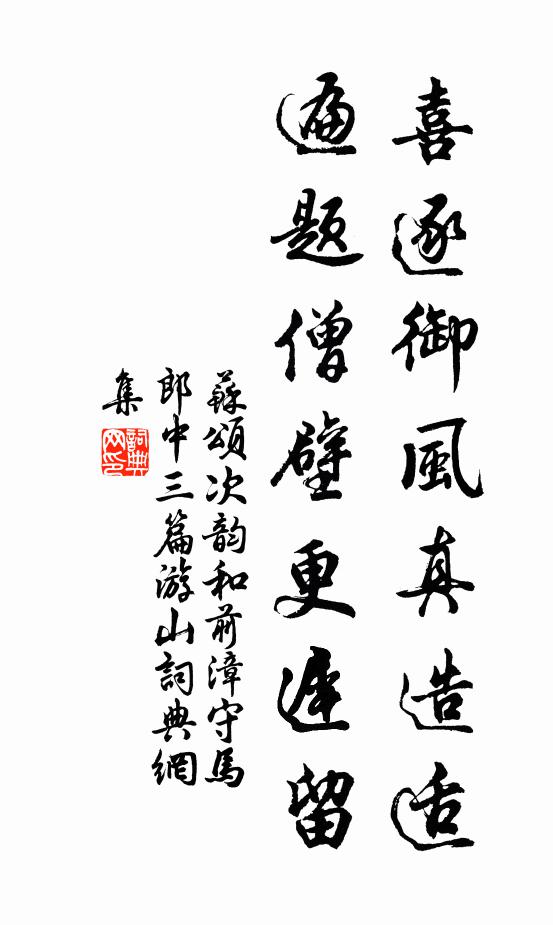 喜逐御風真造适
遍題僧壁更遲留
蘇頌次韵和前漳守馬
郎中三篇游山詞典網
集
詞典网印